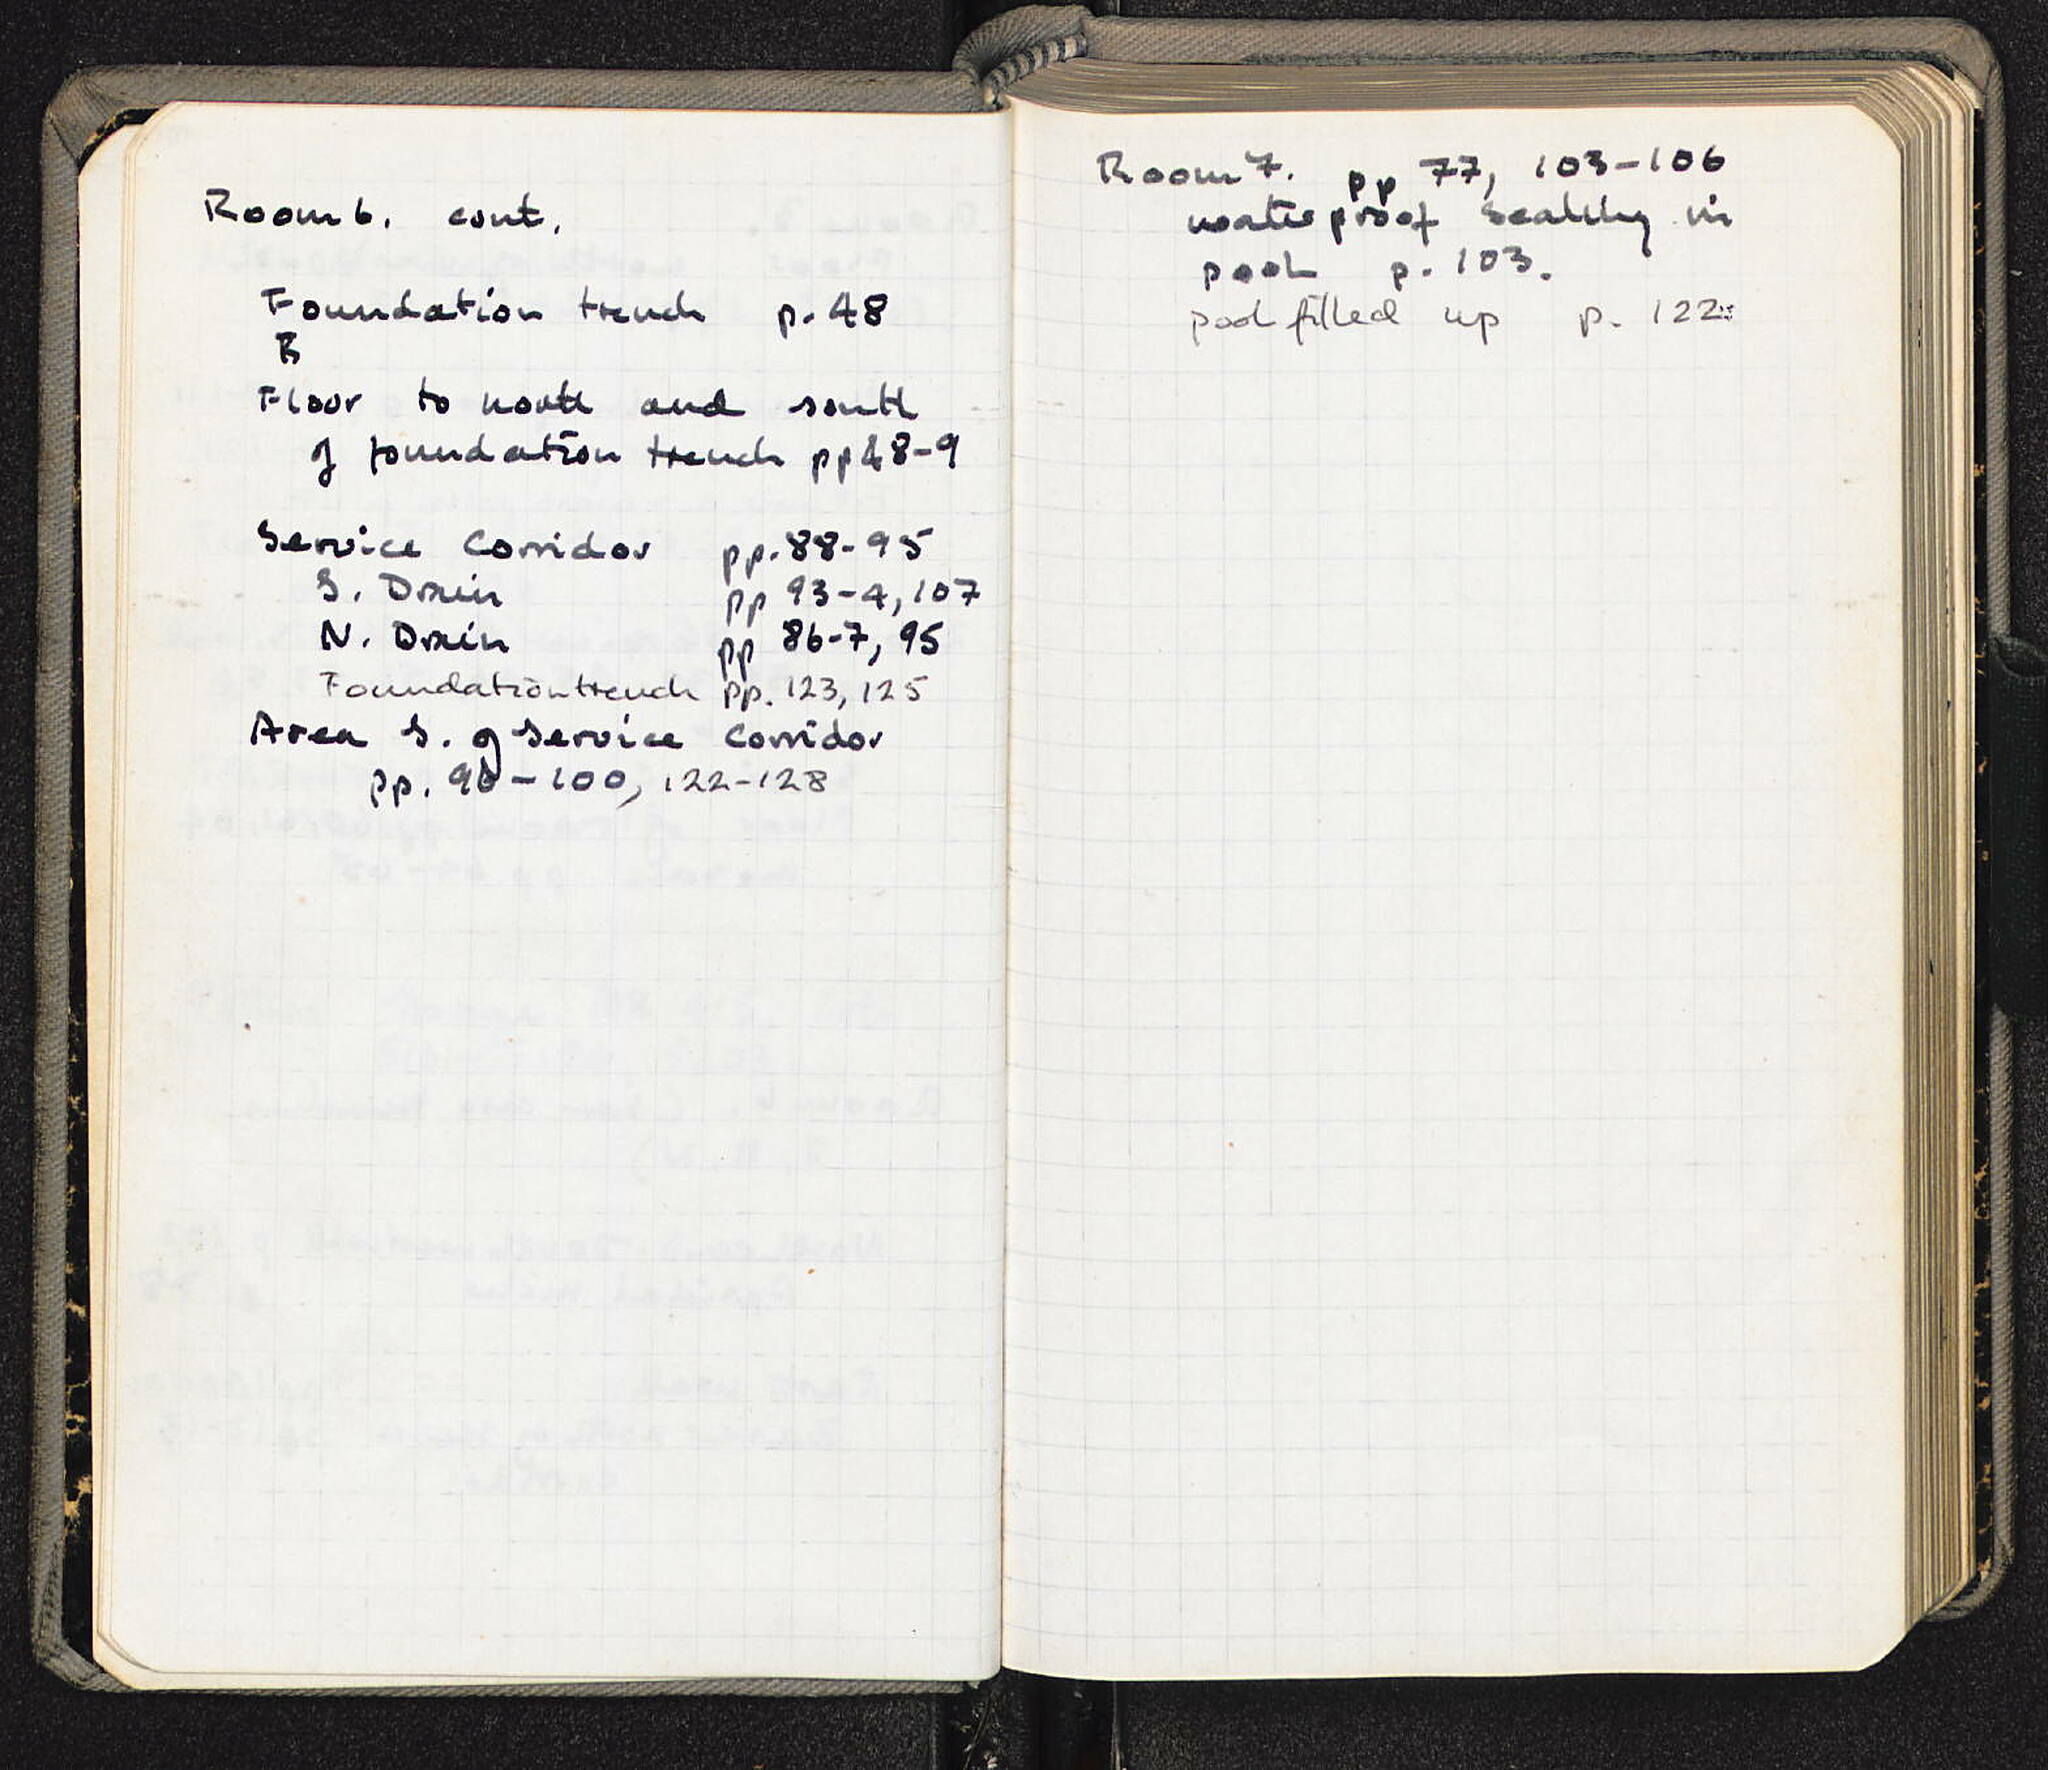 Room 6. cont.
Foundation trench p. 48
B
Floor to north and south
of foundation trench pp 48-9
Service Corridor pp. 88-95
S. Drain pp 93-4, 107
N. Drain pp 86-7, 95
Foundation trench pp. 123, 125
Area S. of Service Corridor
pp. 96-100, 122-128
Room 7. pp 77, 103-106
waterproof sealing in
pool p. 103.
pool filled up p. 122